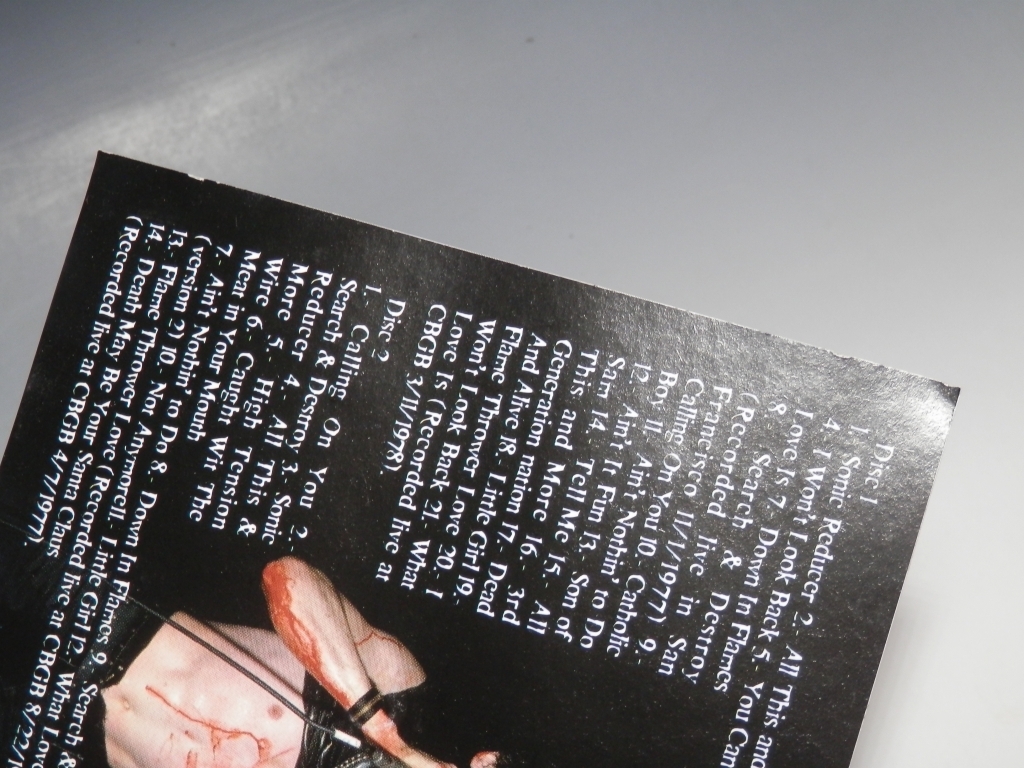 Disc 1
1. Sonic Reducer 2. All This and
4. I Wont Look Back 5. You Can
Love Is 7. Down In Flames
8. Search & Destroy
(Recorded live in San
Francisco 1/1/1977) 9.
Calling On You 10. Catholic
Boy 11. Ain't Nothin' to Do
12. Ain't It Fun 13. Son of
Sam 14. Tell Me 15. All
This and More 16. 3rd
Generation nation 17. Dead
And Alive 18. Little Girl 19.
Flame Thrower Love 20. I
Won't Look Back 21. What
Love Is (Recorded live at
CBGB 3/1/1978).
Disc 2
1. Calling On You 2.
Search & Destroy 3. Sonic
Reducer 4. All This &
More 5. High Tension
Wire 6. Caught Wit The
Meat in Your Mouth
7. Ain't Nothin' to Do 8. Down In Flames 9. Search &
(version 2) 10. Not Anymore 11. Little Girl 12. What Love
13. Flame Thrower Love (Recorded live at CBGB 8/22/1
14. Death May Be Your Santa Claus
(Recorded live at CBGB 4/7/1977).